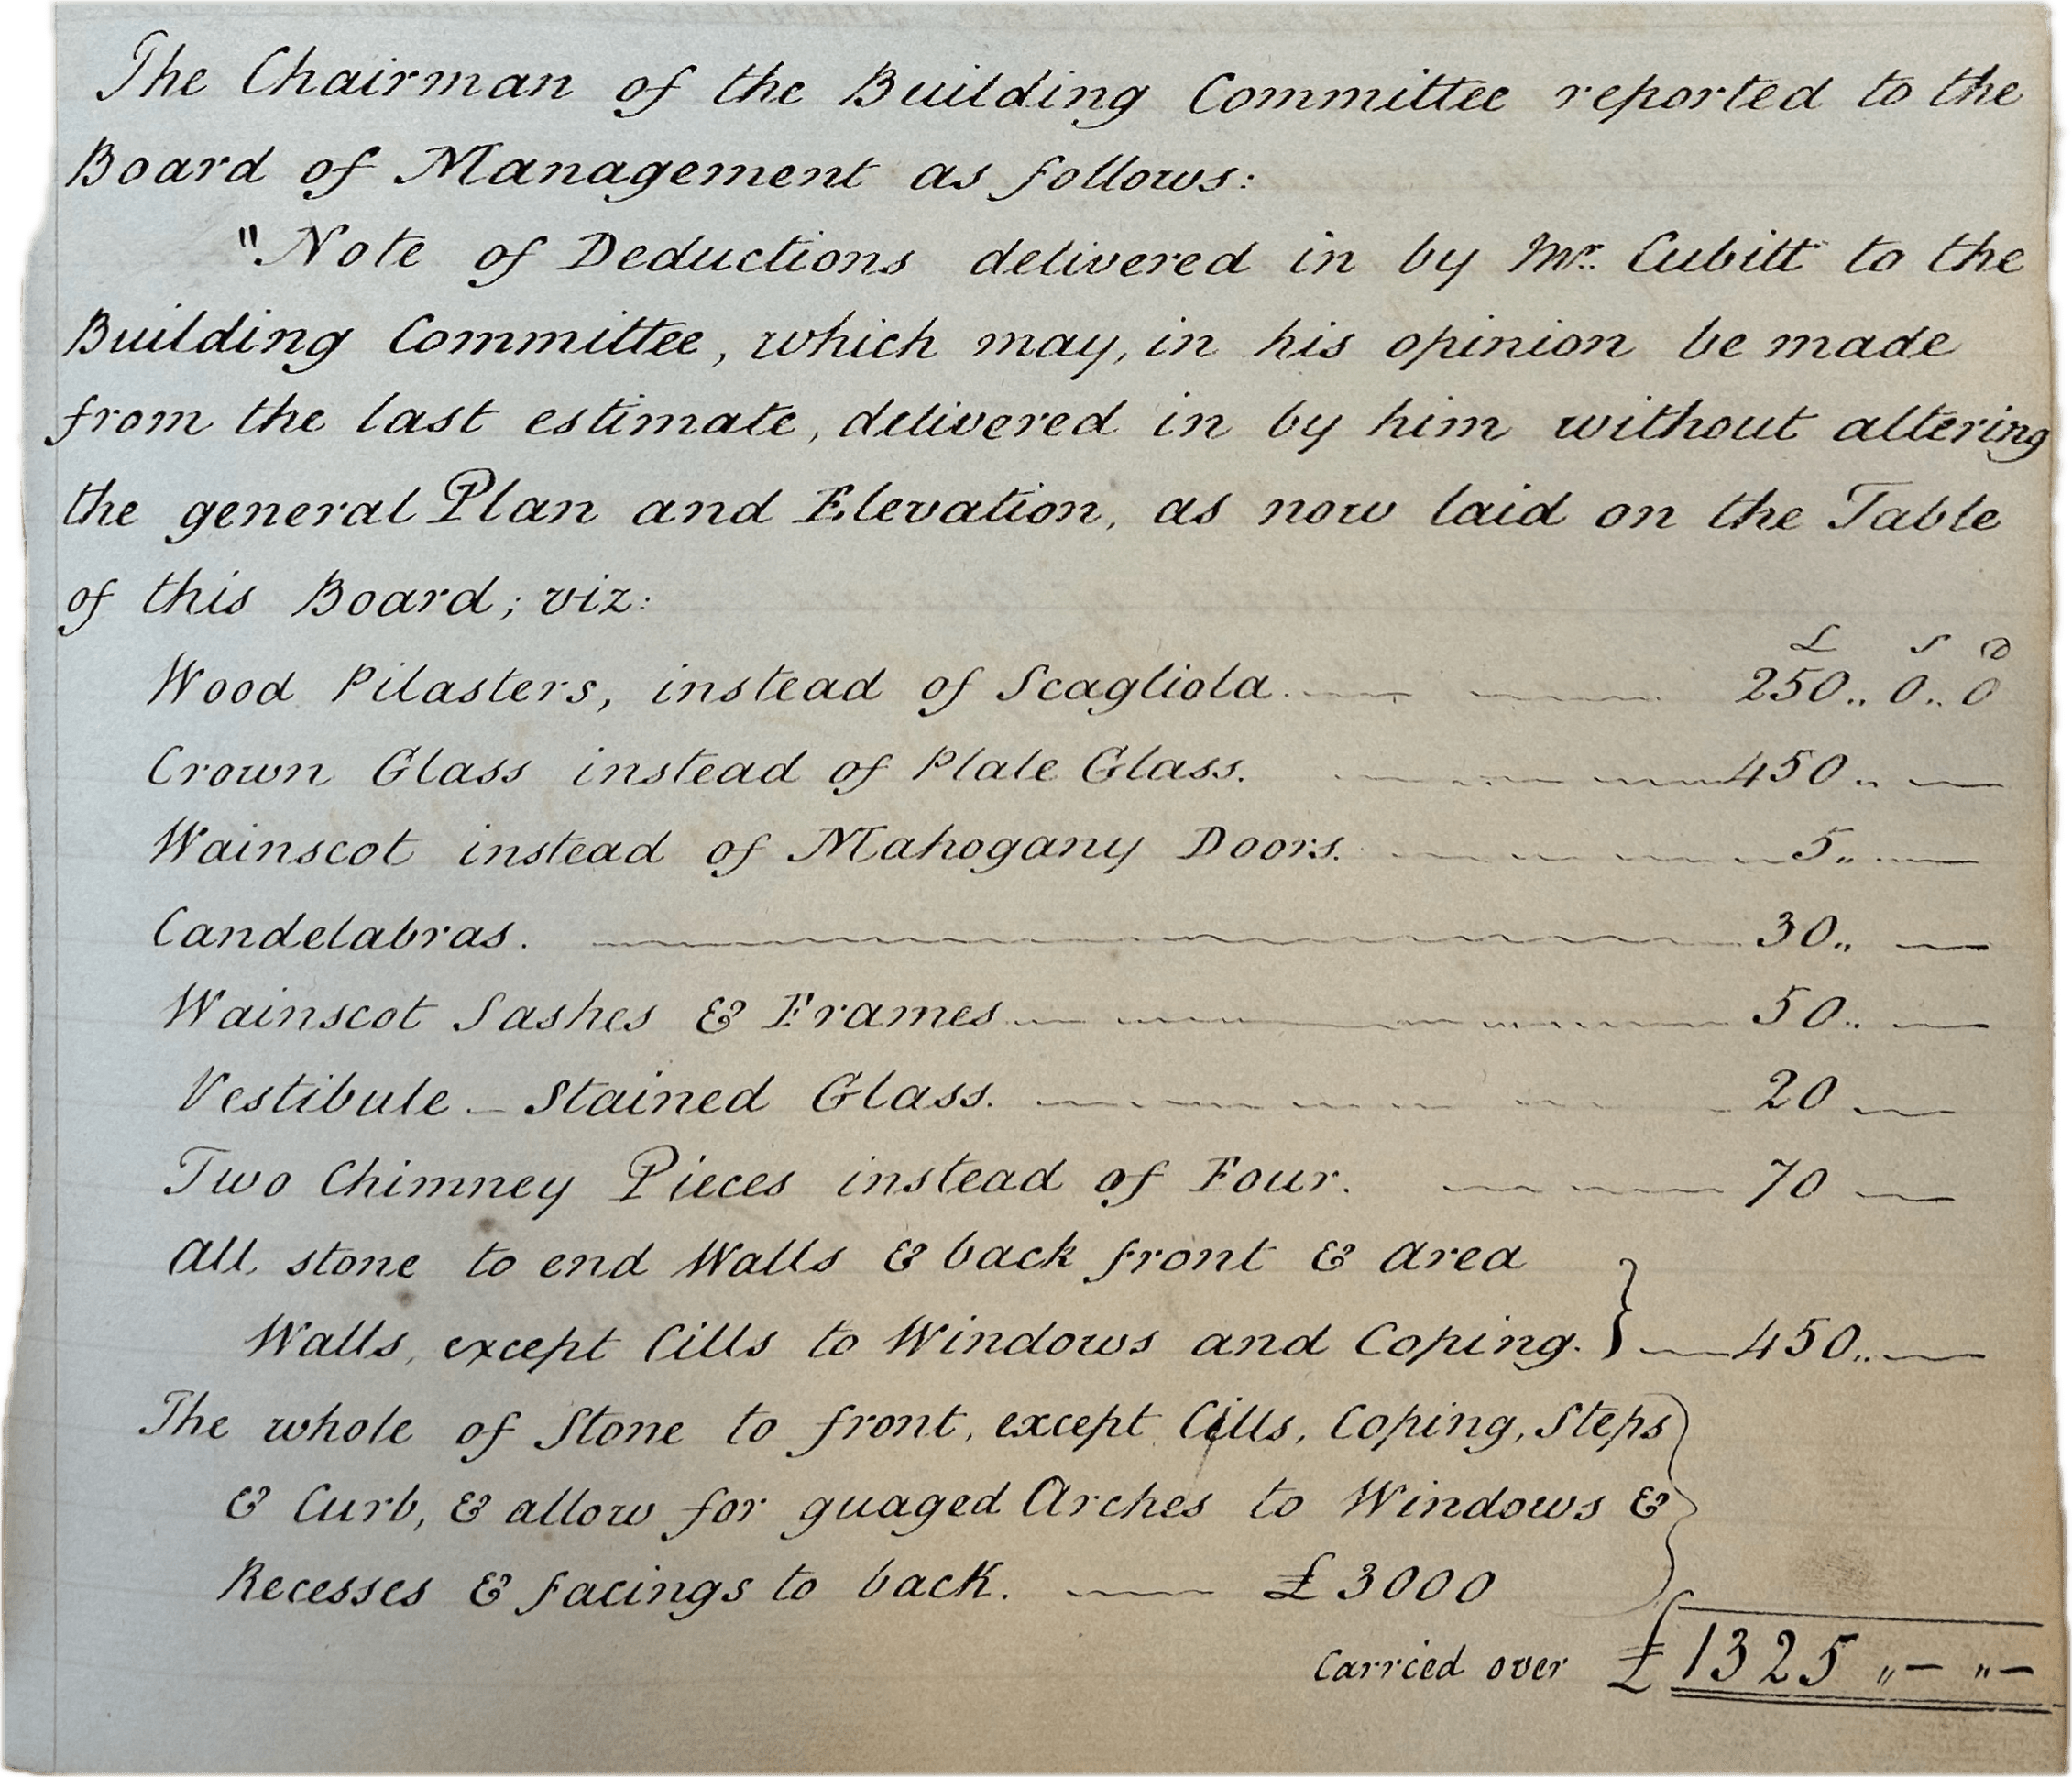 The Chairman of the Building Committee reported to the
Board of Management as follows:
"Note of Deductions delivered in by Mr. Cubitt to the
Building Committee, which may, in his opinion be made
from the last estimate, delivered in by him without altering
the general Plan and Elevation, as now laid on the Table
of this Board; viz:
£ s d
Wood Pilasters, instead of Scagliola. 250.. 0.. 0
Crown Glass instead of Plate Glass. 450.. —
Wainscot instead of Mahogany Doors. 5.. —
Candelabras. 30.. —
Wainscot Sashes & Frames 50.. —
Vestibule – Stained Glass. 20 —
Two Chimney Pieces instead of Four. 70 —
All stone to end Walls & back front & area
Walls, except Cills to Windows and Coping. } 450.. —
The whole of Stone to front, except Cills, Coping, Steps
& Curb, & allow for guaged Arches to Windows &
Recesses & facings to back. — £3000 }
Carried over £1325 ,,– ,,–